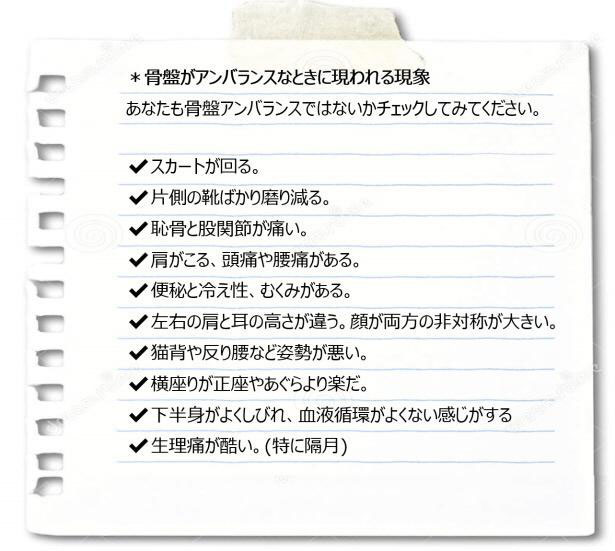 ＊骨盤がアンバランスなときに現われる現象
あなたも骨盤アンバランスではないかチェックしてみてください。
✔スカートが回る。
✔片側の靴ばかり磨り減る。
✔恥骨と股関節が痛い。
✔肩がこる、頭痛や腰痛がある。
✔便秘と冷え性、むくみがある。
✔左右の肩と耳の高さが違う。顔が両方の非対称が大きい。
✔猫背や反り腰など姿勢が悪い。
✔横座りが正座やあぐらより楽だ。
✔下半身がよくしびれ、血液循環がよくない感じがする
✔生理痛が酷い。(特に隔月)